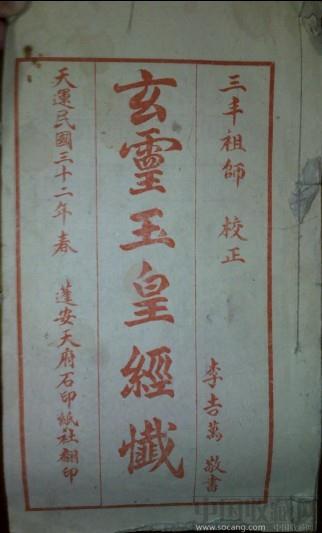 三丰祖師 校正
李吉萬 敬書
玄靈玉皇經懺
天運民國三十二年春 蓬安天府石印紙社翻印
中国收藏网
www.socang.com
中国收藏网